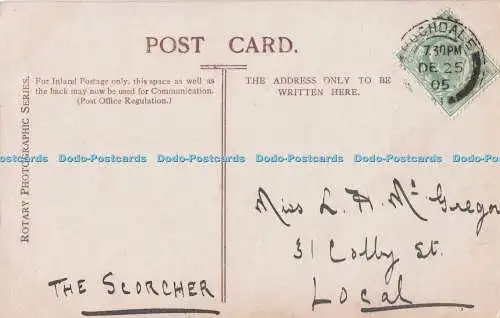 POST CARD.
ROCHDALE
7.30PM
DE 25
05
ROTARY PHOTOGRAPHIC SERIES.
For Inland Postage only, this space as well as
the back may now be used for Communication.
(Post Office Regulation.)
THE ADDRESS ONLY TO BE
WRITTEN HERE.
Dodo-Postcards Dodo-Postcards Dodo-Postcards Dodo-Postcards Dodo-Postcards Dodo-Postcards
Miss L. A. McGregor
31 Colby St.
Local
THE SCORCHER